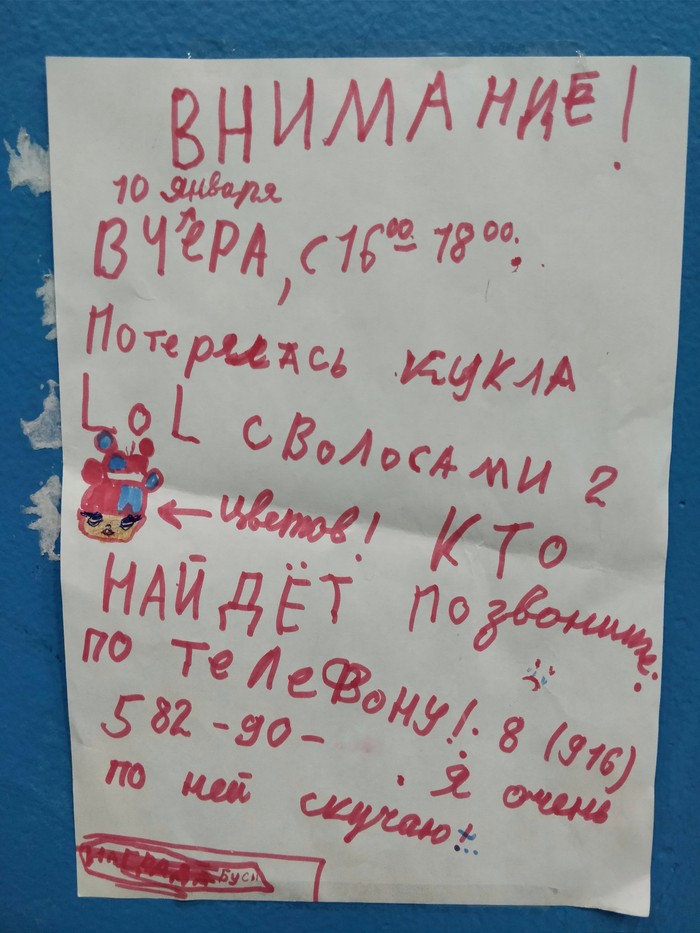 ВНИМАНИЕ!
10 января
ВЧЕРА, с 16 00 - 18 00.
Потерялась кукла
LOL с волосами 2
← цветов! КТО
НАЙДЁТ позвоните
по телефону! 8 (916)
582-90- . Я очень
по ней скучаю!
БУСЫ